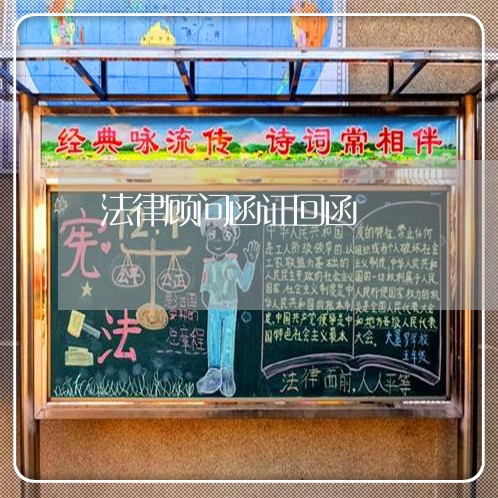 经典咏流传 诗词常相伴
法律顾问函证回函
宪法
公平 公正
总章程
中华人民共和国
是工人阶级领导的,以
工农联盟为基础的
人民民主专政的社会主义
国家,社会主义制度是中
华人民共和国的根本制
度,中国共产党领导是中
国特色社会主义最本
质的特征,禁止任何
组织或者个人破坏社会
主义制度,中华人民共和
国的一切权利属于人民,
人民行使国家权力的机
关是全国人民代表大会
和地方各级人民代表
大会。
五年级
法律面前,人人平等